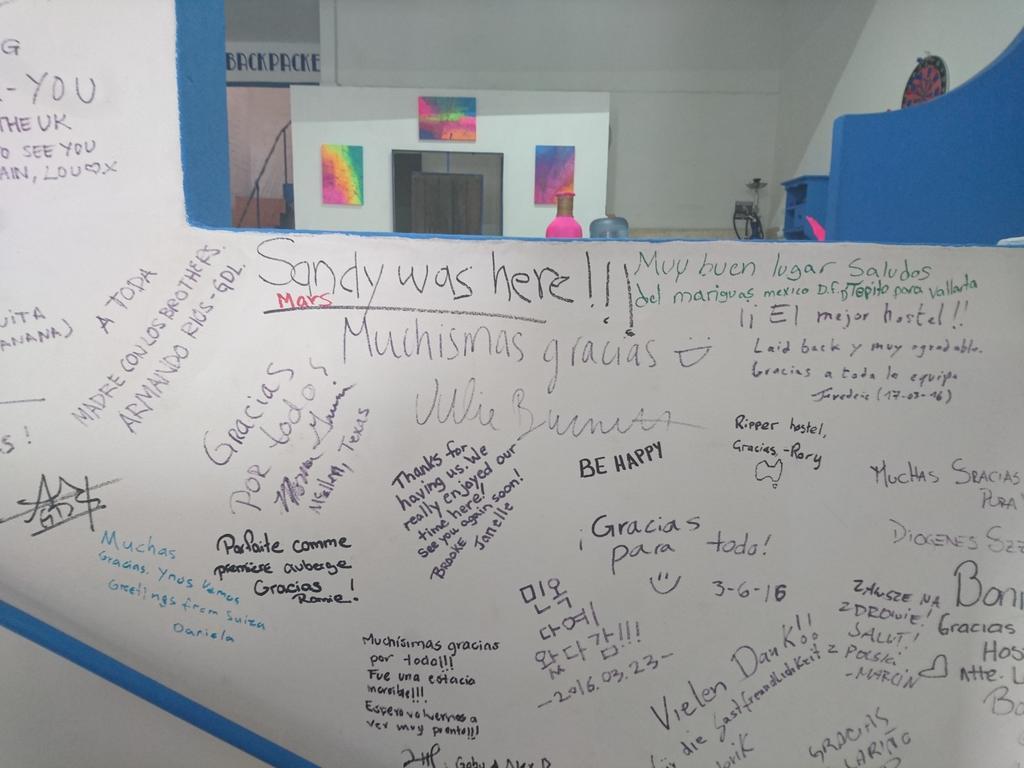 G
YOU
THE UK
O SEE YOU
AIN, LOU♡.x
BACKPACKE
A TODA
MADRE CON LOS BROTHERS.
ARMANDO RIOS-GDL.
Sandy was here!!!
Mars
Muy buen lugar Saludos
del mariguas mexico D.F. Tepito para vallarta
¡¡ El mejor hostel!!
Laid back y muy agradable.
Gracias a toda la equipa
(17-03-16)
Muchismas gracias
Julie
GRACIAS
POR todo!
TEXAS
Thanks for
having us. We
really enjoyed our
time here!
See you again soon!
BROOKE Janelle
BE HAPPY
Ripper hostel,
Gracias, -Rory
MUCHAS GRACIAS
PURA
DIOGENES
Muchas
Gracias. Ynos Vemos
Greetings from Suiza
Daniela
Parfaite comme
première auberge
Gracias !
¡Gracias
para todo!
3-6-16
민옥
다예
왔다감!!!
-2016.03.23-
ZAWSZE NA
ZDROWIE!
SALUT!
Z POLSKI
-MARCIN
Gracias
Atte.
Muchísimas gracias
por todo!!!
Fue una estacia
increible!!!
Espero volvernos a
ver muy pronto!!!
Gaby
Vielen Dank!!
die Gastfreundlichkeit
GRACIAS